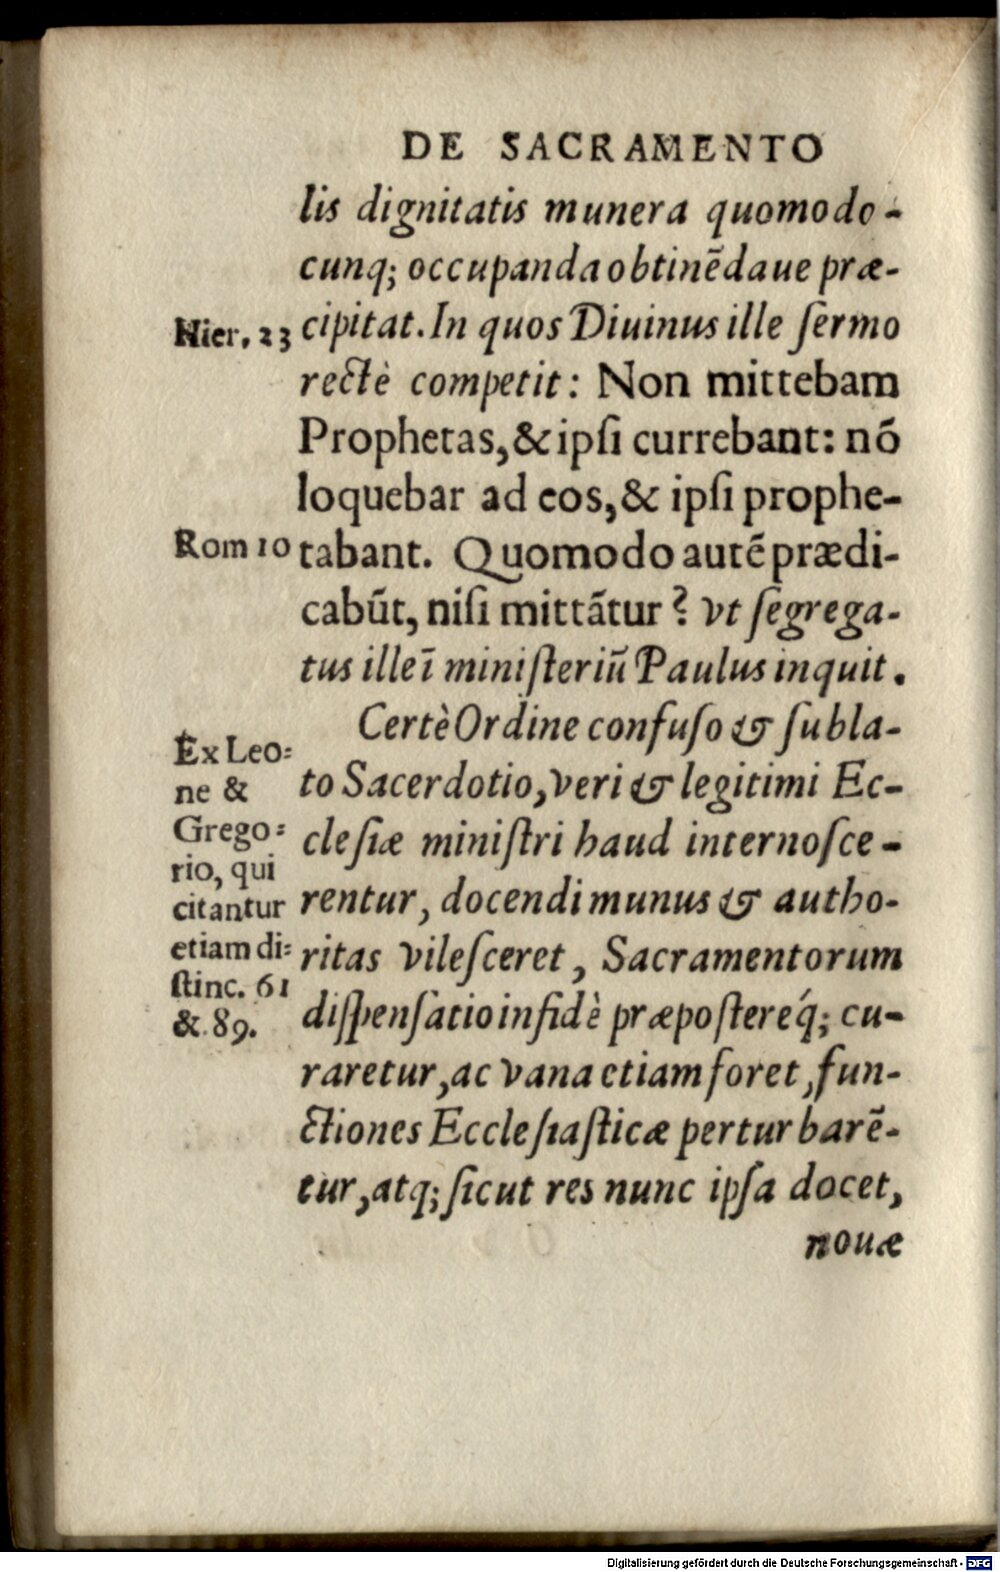 DE SACRAMENTO
lis dignitatis munera quomodo-
cunq; occupanda obtinēdaue præ-
Hier. 23
cipitat. In quos Diuinus ille ſermo
rectè competit: Non mittebam
Prophetas, & ipſi currebant: nō
loquebar ad eos, & ipſi prophe-
Rom 10
tabant. Quomodo autē prædi-
cabūt, niſi mittātur? vt ſegrega-
tus ille ī miniſteriū Paulus inquit.
Certè Ordine confuſo & ſubla-
to Sacerdotio, veri & legitimi Ec-
cleſiæ miniſtri haud internoſce-
rentur, docendi munus & autho-
ritas vileſceret, Sacramentorum
diſpenſatio infidè præpoſtereq́; cu-
raretur, ac vana etiam foret, fun-
ctiones Eccleſiaſticæ perturbarē-
tur, atq; ſicut res nunc ipſa docet,
nouæ
Ex Leo=
ne &
Grego=
rio, qui
citantur
etiam di=
ſtinc. 61
& 89.
Digitalisierung gefördert durch die Deutsche Forschungsgemeinschaft - DFG